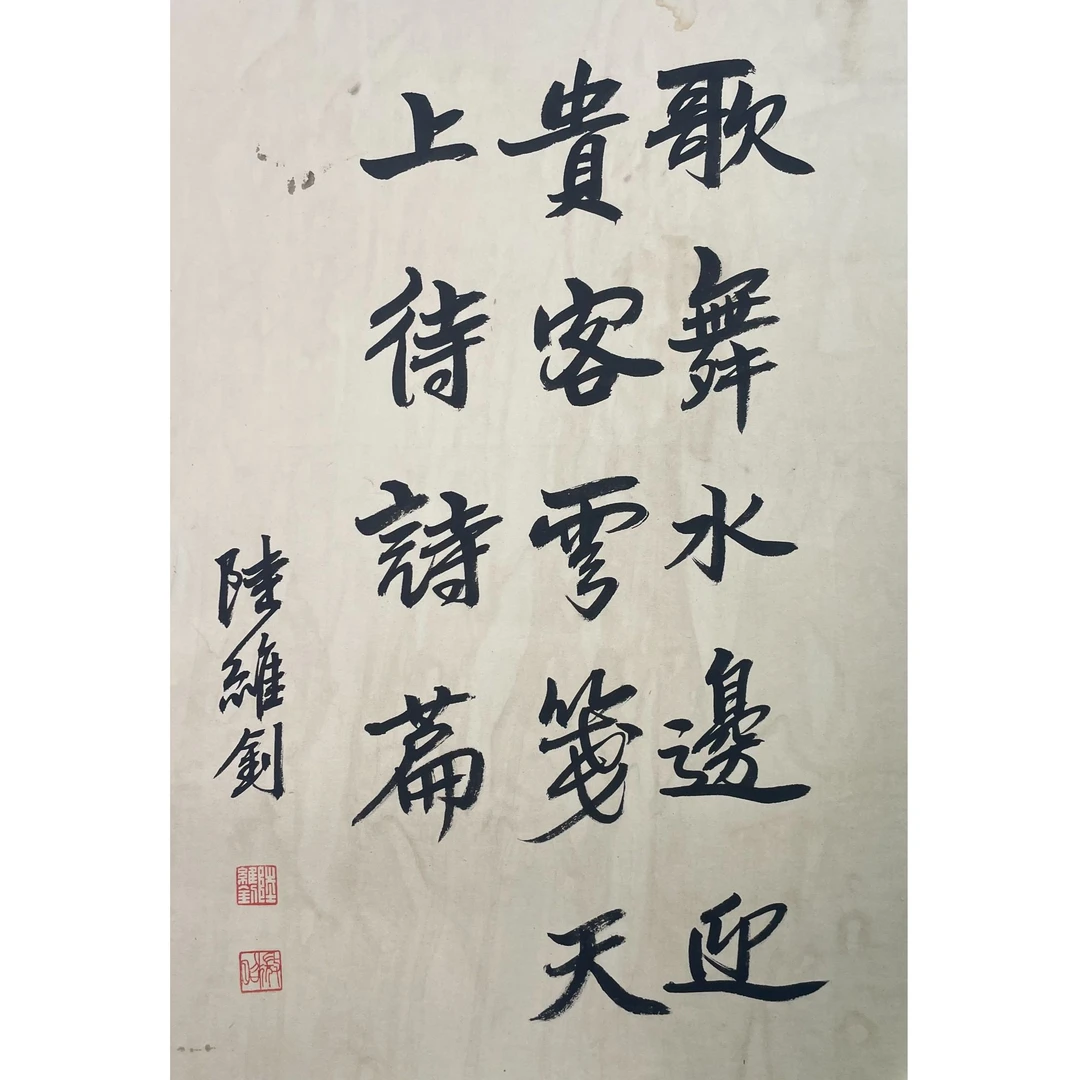 歌舞水邊迎
貴客雲箋天
上待詩篇
陸維釗
陸維釗